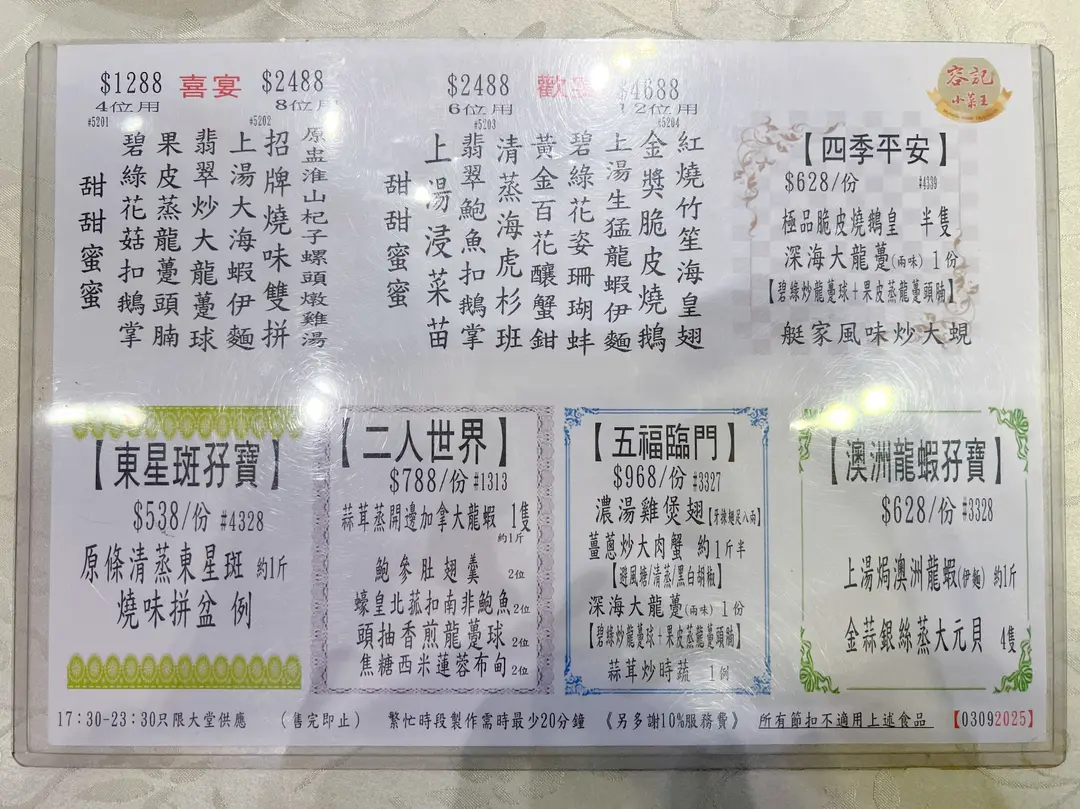 $1288 喜宴 $2488
4位用 8位用
#5201 #5202
原盅淮山杞子螺頭燉雞湯
招牌燒味雙拼
上湯大海蝦伊麵
翡翠炒大龍躉球
果皮蒸龍躉頭腩
碧綠花菇扣鵝掌
甜甜蜜蜜
$2488 歡 $4688
6位用 12位用
#5203 #5204
紅燒竹笙海皇翅
金獎脆皮燒鵝
上湯生猛龍蝦伊麵
碧綠花姿珊瑚蚌
黃金百花釀蟹鉗
清蒸海虎杉班
翡翠鮑魚扣鵝掌
上湯浸菜苗
甜甜蜜蜜
容記
小菜王
【四季平安】
$628/份 #4339
極品脆皮燒鵝皇 半隻
深海大龍躉(兩味)1份
【碧綠炒龍躉球+果皮蒸龍躉頭腩】
艇家風味炒大蜆
【東星斑孖寶】
$538/份 #4328
原條清蒸東星斑 約1斤
燒味拼盆 例
【二人世界】
$788/份 #1313
蒜茸蒸開邊加拿大龍蝦 1隻
約1斤
鮑參肚翅羹 2位
蠔皇北菰扣南非鮑魚 2位
頭抽香煎龍躉球 2位
焦糖西米蓮蓉布甸 2位
【五福臨門】
$968/份 #3327
濃湯雞煲翅【牙揀翅足八兩】
薑蔥炒大肉蟹 約1斤半
【避風塘/清蒸/黑白胡椒】
深海大龍躉(兩味)1份
【碧綠炒龍躉球+果皮蒸龍躉頭腩】
蒜茸炒時蔬 1例
【澳洲龍蝦孖寶】
$628/份 #3328
上湯焗澳洲龍蝦(伊麵) 約1斤
金蒜銀絲蒸大元貝 4隻
17:30-23:30只限大堂供應 (售完即止) 繁忙時段製作需時最少20分鐘 《另多謝10%服務費》 所有節扣不適用上述食品 【03092025】